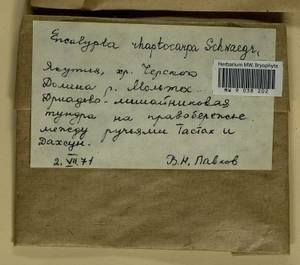 Encalypta rhaptocarpa Schwaegr.
Herbarium MW, Bryophyta
MW 9 038 202
Якутия, хр. Черского
Долина р. Мольтех.
Дриадово-лишайниковая
тундра на правобережье
между ручьями Тастах и
Дахсун.
2.VII.71 В.Н. Павлов